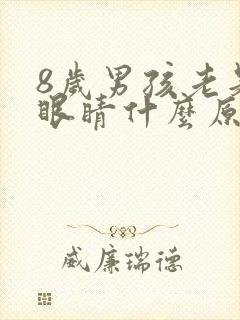 8歲男孩老
眼睛什麼原
威廉瑞德